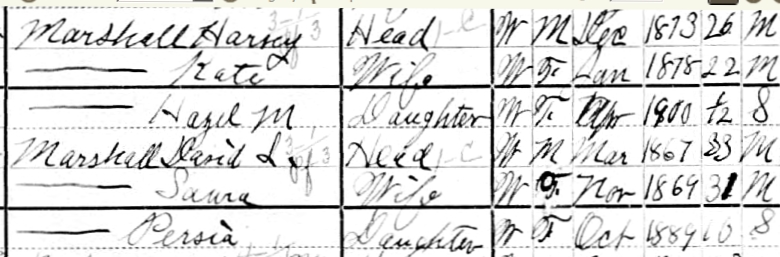 Marshall Harvey Head W M Dec 1873 26 M
—— Kate Wife W F Jan 1878 22 M
—— Hazel M Daughter W F Apr 1900 1/12 S
Marshall David L Head W M Mar 1867 33 M
—— Laura Wife W F Nov 1869 31 M
—— Persia Daughter W F Oct 1889 10 S